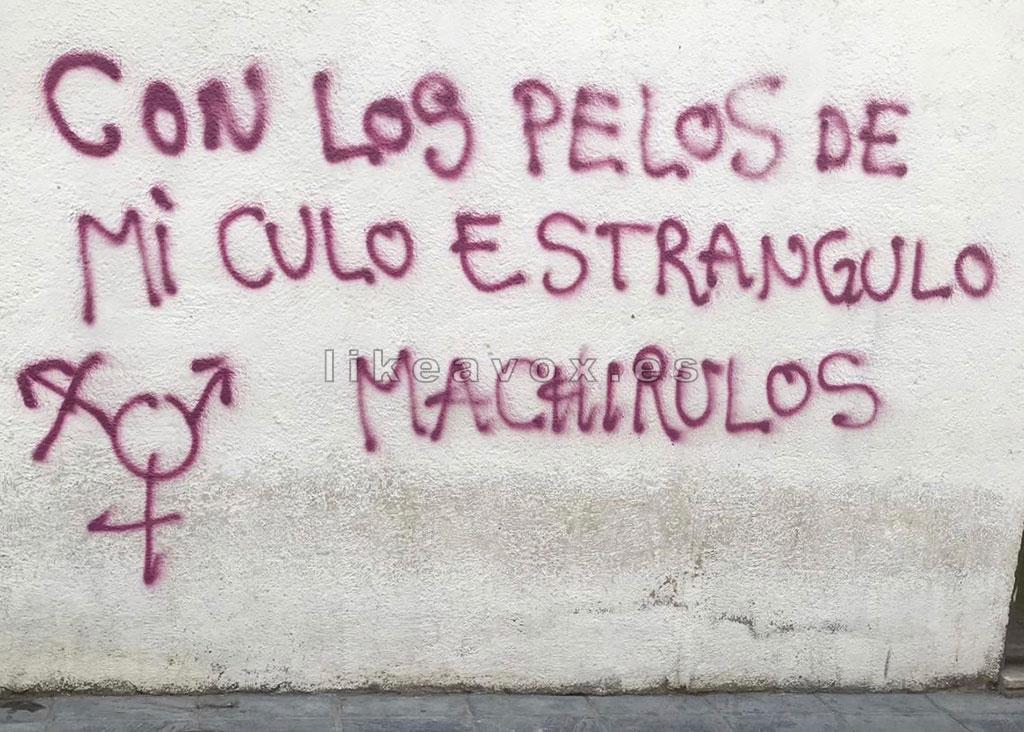 CON LOS PELOS DE
Mi CULO ESTRANGULO
MACHIRULOS
likeavox.es